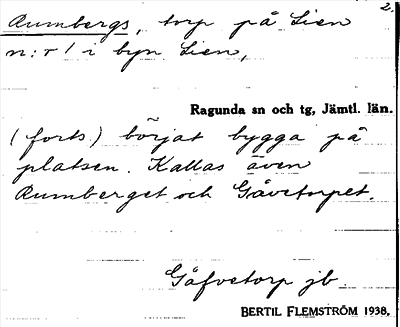 2.
Rumbergs, torp på Lien
n:r 1 i byn Lien,
Ragunda sn och tg, Jämtl. län.
(forts.) börjat bygga på
platsen. Kallas även
Rumberget och Gåvetorpet.
Gåfvetorp jb
BERTIL FLEMSTRÖM 1938.